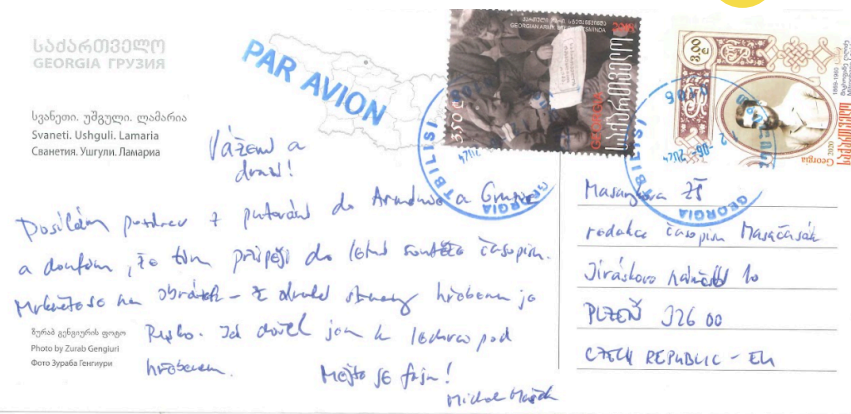 საქართველო
GEORGIA ГРУЗИЯ
PAR AVION
სვანეთი. უშგული. ლამარია
Svaneti. Ushguli. Lamaria
Сванетия. Ушгули. Ламария
Vážení a
drazí!
Posílám pozdrav z putování do a
a doufám, že tím přispěji do letní soutěže časopisu.
na obrázek – z druhé strany hřebenu je
Rusko. Já došel jsem k ledovci pod
hřebenem. Mějte se fajn!
Michal
ზურაბ გენგიურის ფოტო
Photo by Zurab Gengiuri
Фото Зураба Генгиури
3.50
GEORGIA
საქართველო
3.00
Georgia
2020
1869-1960
TBILISI
GEORGIA
2024
TBILISI
GEORGIA
2024
Masarykova ZŠ
redakce časopisu Masačasák
Jiráskovo náměstí 10
PLZEŇ 326 00
CZECH REPUBLIC – EU